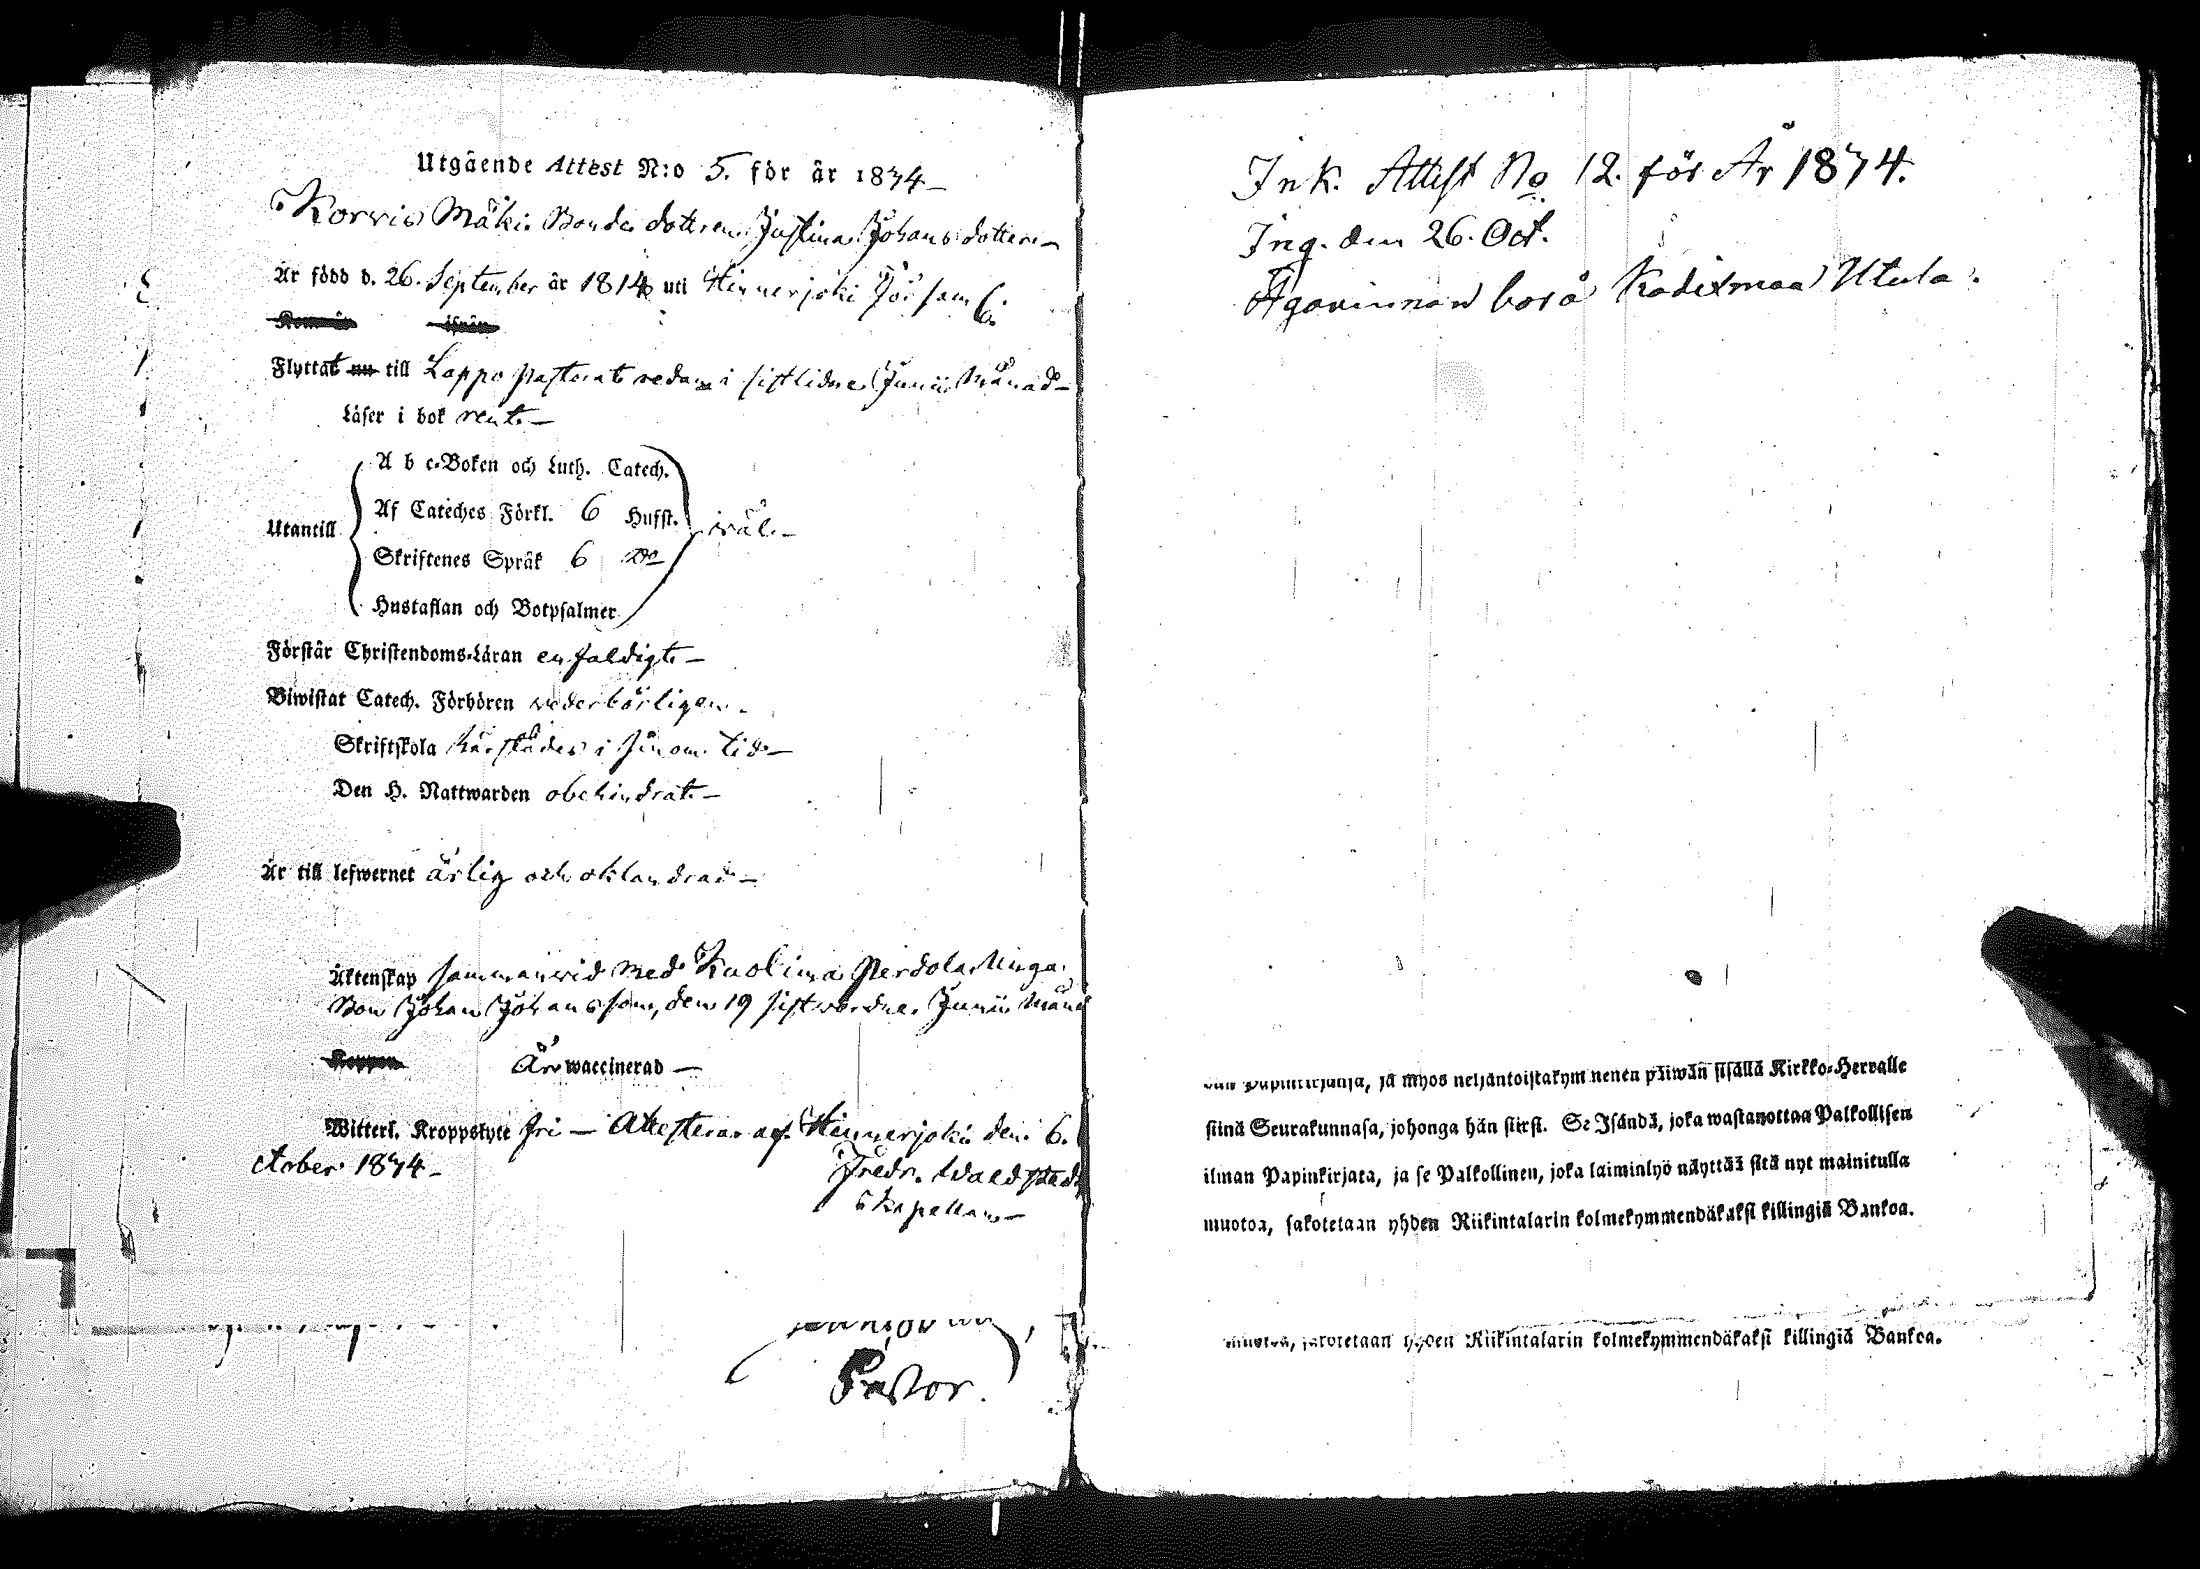 Utgående Attest N:o 5. för år 1834
Korvis Mäki Bonde dottren Justina Johans dotter
Är född d. 26. September år 1814 uti Hinnerjoki
Flyttat till Lappo pastorat redan i sistlidne Junii Månad
Läser i bok rent
A b c-Boken och Luth. Catech.
Af Cateches Förkl. 6 Hufst.
Utantill väl.
Skriftenes Språk 6 Do
Hustaflan och Botpsalmer
Förstår Christendoms-Läran enfaldigt
Biwistat Catech. Förhören vederbörligen.
Skriftskola härstädes i sinom tid
Den H. Nattwarden obehindrat
Är till lefwernet ärlig och oklandrad
Äktenskap sammanvid med Kuolima
Bon Johan Johansson, den 19 sistvordne Junii Månad
Är waccinerad
Witterl. Kroppslyte fri — Attesterar af Hinnerjoki den 6.
ctober 1834
Fredr.
Kapellan
Pastor.
Ink. Attest No 12. för År 1834.
Ing. den 26. Oct.
Utula
ja myös neljäntoistakymmenenen päiwän sisällä Kirkko-Herralle
siinä Seurakunnasa, johonga hän siirst. Se Isändä, joka wastanottaa Palkollisen
ilman Papinkirjata, ja se Palkollinen, joka laiminlyö näyttää sitä nyt mainitulla
muotoa, sakotetaan yhden Riikintalarin kolmekymmendäkaksi killingiä Bankoa.
muotoa, sakotetaan yhden Riikintalarin kolmekymmendäkaksi killingiä Bankoa.